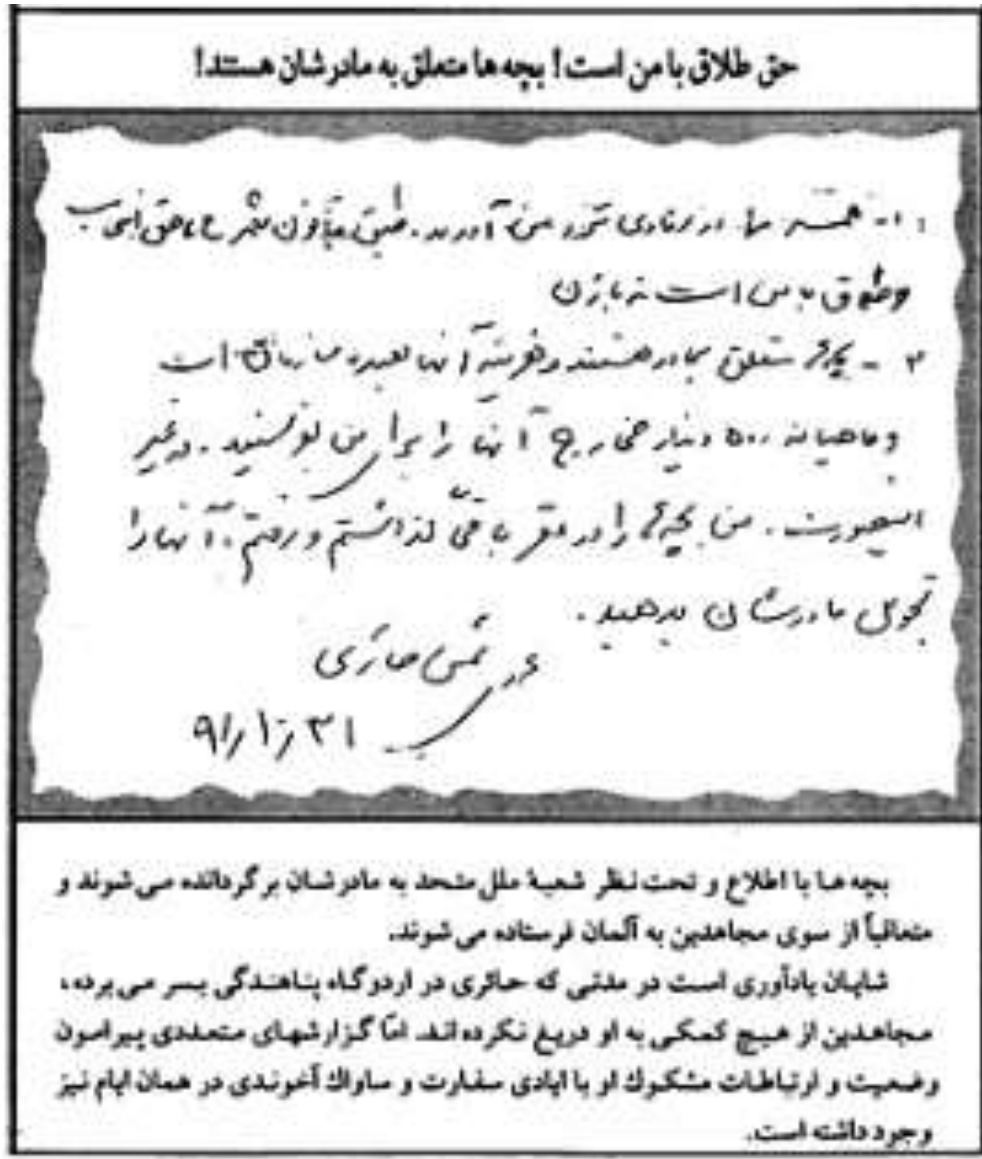 حق طلاق با من است! بچه‌ها متعلق به مادرشان هستند!
۱- همسر ما در رمادی نزد من آورید. طبق قانون شرع ما حق
و طلاق با من است نه با زن
۲ - بچه‌ها متعلق بمادر هستند و هزینه آنها بعهده سازمان است
و ماهیانه ۵۰۰ دینار مخارج آنها را برای من بفرستید. در غیر
اینصورت. من بچه‌ها را در مقر باقی گذاشتم و رفتم. آنها را
تحویل مادرشان بدهید.
شمس حائری
۹۱/۱۰/۳۱
بچه‌ها با اطلاع و تحت نظر شعبهٔ ملل متحد به مادرشان برگردانده می‌شوند و
متعاقباً از سوی مجاهدین به آلمان فرستاده می‌شوند.
شایان یادآوری است در مدتی که حائری در اردوگاه پناهندگی بسر می‌برده،
مجاهدین از هیچ کمکی به او دریغ نکرده‌اند. امّا گزارشهای متعددی پیرامون
وضعیت و ارتباطات مشکوك او با ایادی سفارت و ساواك آخوندی در همان ایام نیز
وجود داشته است.